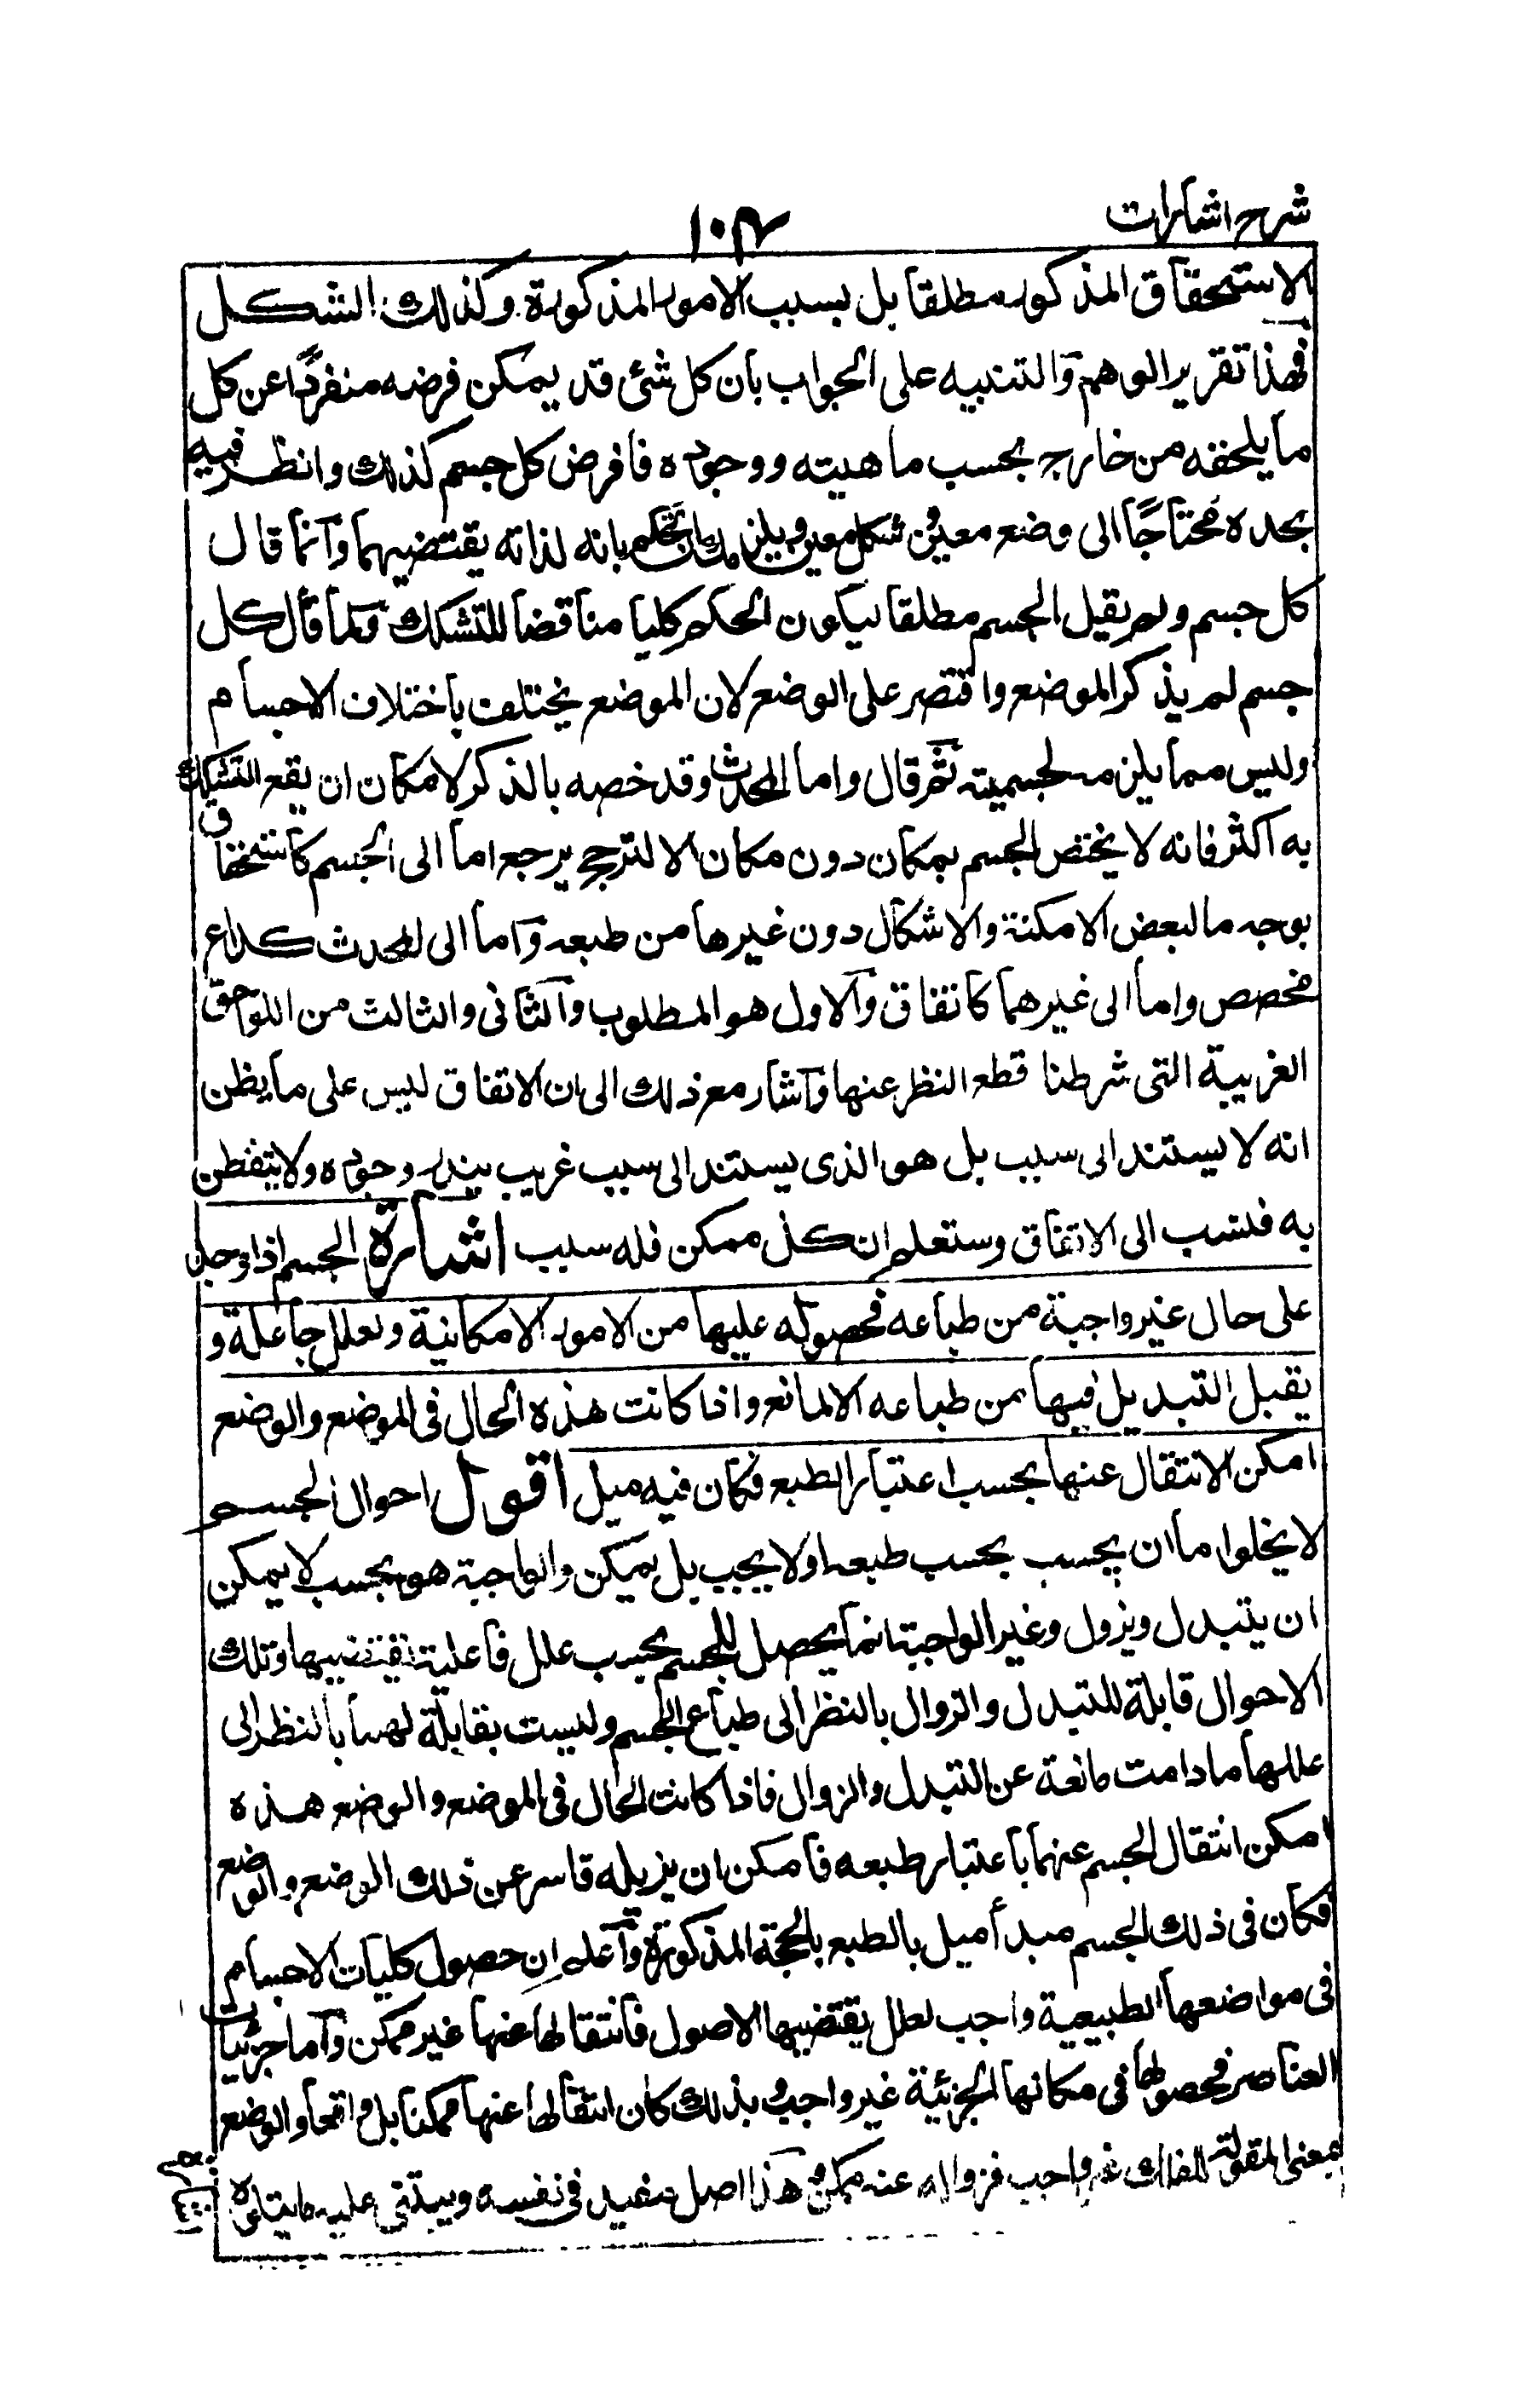 شرح اشارات
١٠٤
الاستحقاق المذكور مطلقا بل بسبب الامور المذكورة وكذلك الشكل
فهذا تقرير الوهم والتنبيه على الجواب بان كل شئ قد يمكن فرضه منفردا عن كل
ما يلحقه من خارج بحسب ماهيته ووجوده فافرض كل جسم كذلك وانظر فيه
تجده محتاجًا الى وضع معين وشكل معين ويلزمك ان تحكم بانه لذاته يقتضيهما وانما قال
كل جسم ولم يقل الجسم مطلقا ليكون الحكم كليا مناقضا للتشكك ولما قال كل
جسم لم يذكر الموضع واقتصر على الوضع لان الموضع يختلف باختلاف الاجسام
وليس مما يلزمه لجسميته ثم قال واما المحدث وقد خصه بالذكر لامكان ان يقع التشكيك
به اكثر فانه لا يختص الجسم بمكان دون مكان الا لترجح يرجع اما الى الجسم كاستحقاق
بوجه ما لبعض الامكنة والاشكال دون غيرها من طبعه واما الى المحدث كداع
مخصص واما الى غيرهما كاتفاق والاول هو المطلوب والثانى والثالث من اللواحق
الغريبة التى شرطنا قطع النظر عنها واشار مع ذلك الى ان الاتفاق ليس على ما يظن
انه لا يستند الى سبب بل هو الذى يستند الى سبب غريب يندر وجوده ولا يتفطن
به فنسب الى الاتفاق وستعلم ان كل ممكن فله سبب اشارة الجسم اذا وجد
على حال غير واجبة من طباعه فحصوله عليها من الامور الامكانية ولعلل جاعلة و
يقبل التبديل فيها من طباعه الا لمانع واذا كانت هذه الحال فى الموضع والوضع
امكن الانتقال عنها بحسب اعتبار الطبع فكان فيه ميل اقول احوال الجسم
لا يخلوا ما ان يجب بحسب طبعه او لا يجب بل يمكن والواجبة هو بحسب لا يمكن
ان يتبدل ويزول وغير الواجبة انما يحصل للجسم بحسب علل فاعلية تقتضيها وتلك
الاحوال قابلة للتبدل والزوال بالنظر الى طباع الجسم وليست بقابلة لهما بالنظر الى
عللها ما دامت مانعة عن التبدل والزوال فاذا كانت الحال فى الموضع والوضع هذه
امكن انتقال الجسم عنهما باعتبار طبعه فامكن ان يزيله قاسر عن ذلك الوضع والوضع
فكان فى ذلك الجسم مبدأ ميل بالطبع بالحجة المذكورة واعلم ان حصول كليات الاجسام
فى مواضعها الطبيعية واجب لعلل يقتضيها الاصول فانتقالها عنها غير ممكن واما جزئيات
العناصر فحصولها فى مكانها الجزئية غير واجب ولذلك كان انتقالها عنها ممكنا بل واقعا والوضع
بمعنى المقولة للفلك غير واجب فزواله عنه ممكن وهذا اصل مفيد فى نفسه ويبتنى عليه ما يتلوه